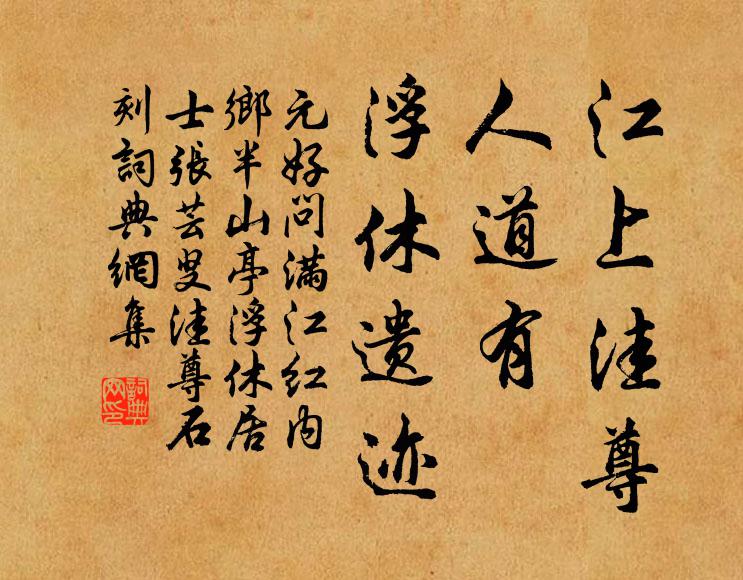 江上洼尊
人道有
浮休遗迹
元好问满江红内
鄉半山亭浮休居
士張芸叟洼尊石
刻詞典網集
詞典網印